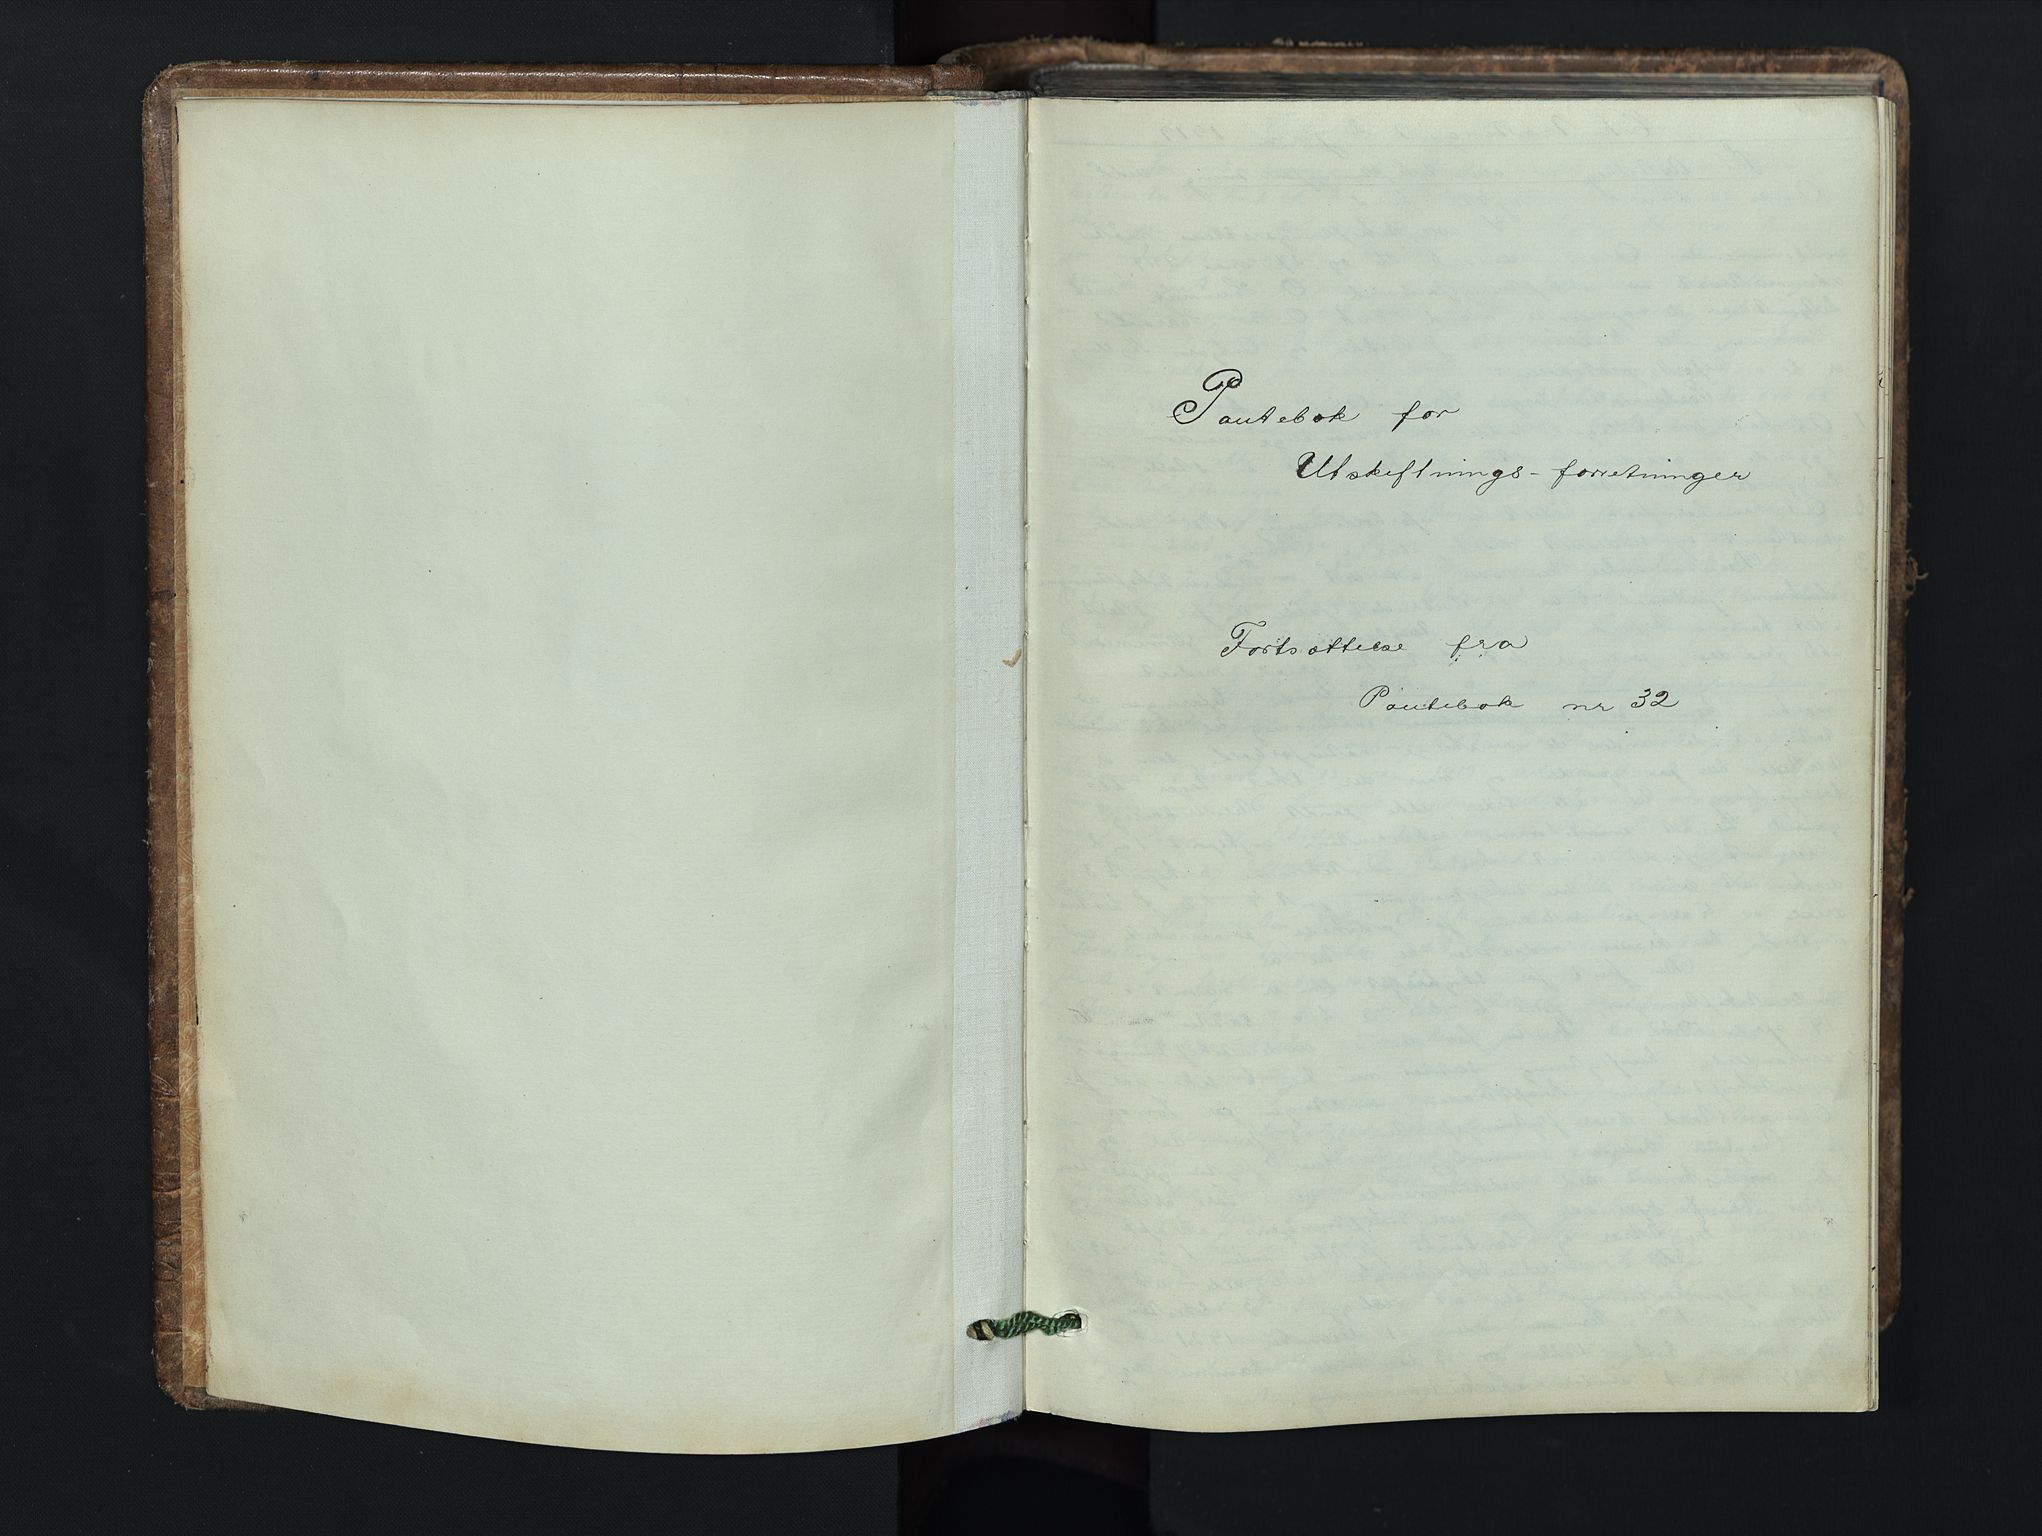 Pantebok for
Utskiftnings-forretninger
Fortsættelse fra
Pantebok nr 32